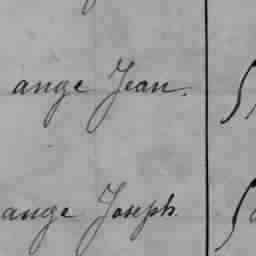 ange Jean.
ange Joseph